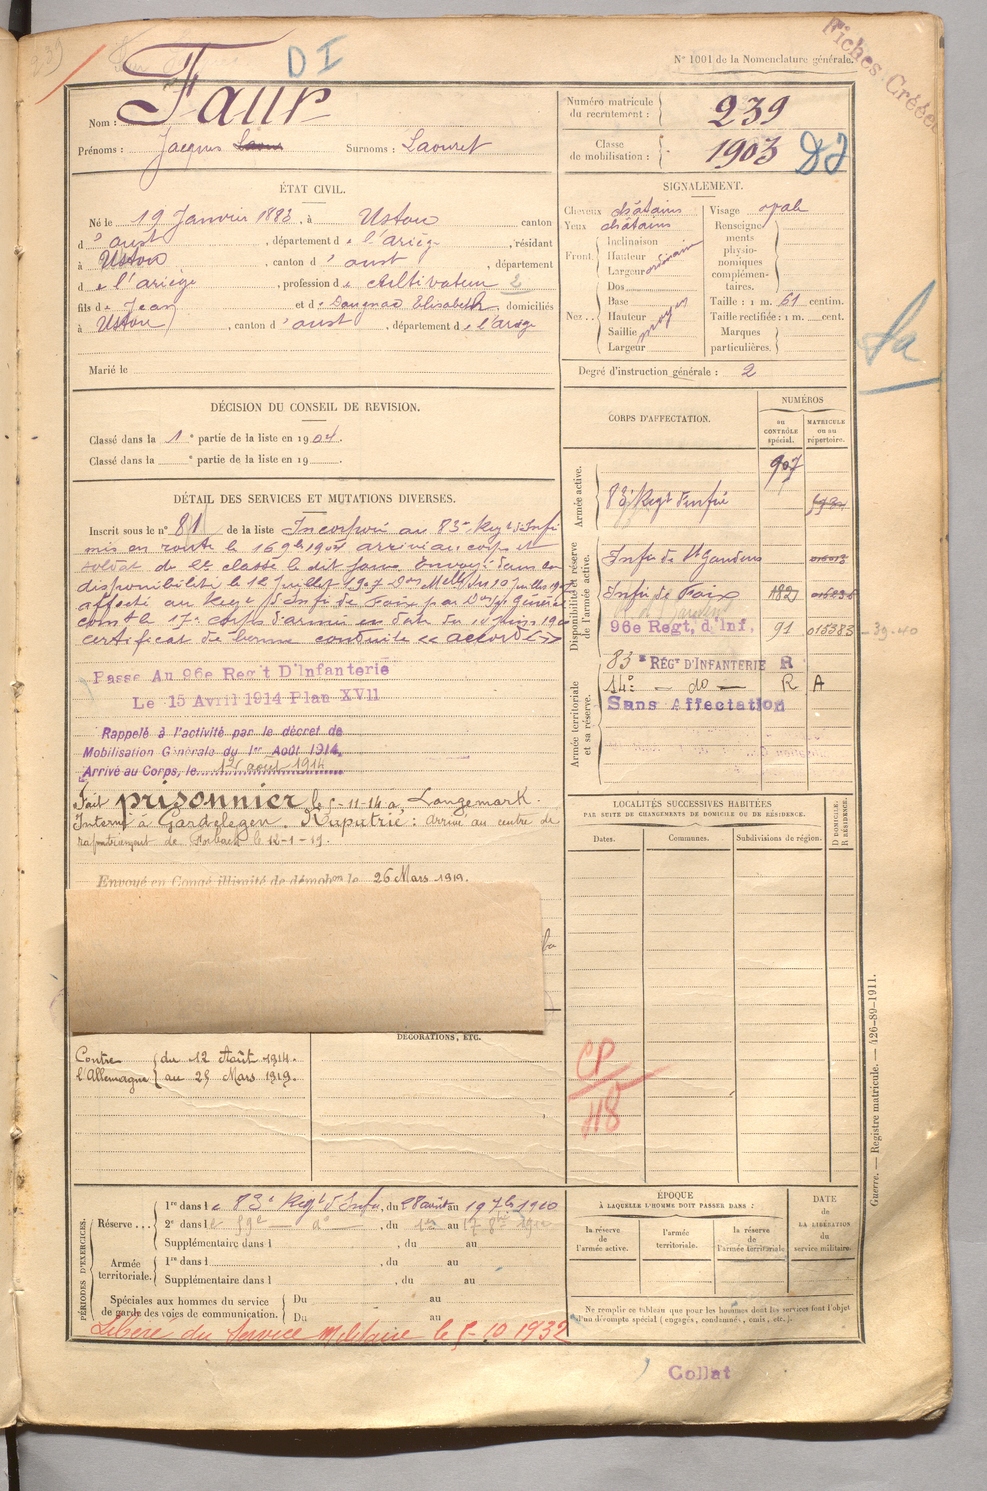 239
D I
N° 1001 de la Nomenclature générale.
Fiches Créées
Nom : Faur
Prénoms : Jacques Surnoms : Laouret
Numéro matricule du recrutement : 239
Classe de mobilisation : 1903
ÉTAT CIVIL.
Né le 19 Janvier 1883, à Ustou canton
d'oust, département de l'ariège, résidant
à Ustou, canton d'oust, département
de l'ariège, profession de cultivateur 2
fils de Jean et de Dougnac Elisabeth, domiciliés
à Ustou, canton d'oust, département de l'ariège
Marié le
SIGNALEMENT.
Cheveux châtains Visage oval
Yeux châtains
Front. Inclinaison Hauteur Largeur
Nez.. Dos Base Hauteur Saillie Largeur moyen
Renseignements physionomiques complémentaires.
Taille : 1 m. 61 centim.
Taille rectifiée : 1 m. cent.
Marques particulières.
Degré d'instruction générale : 2
DÉCISION DU CONSEIL DE REVISION.
Classé dans la 1e partie de la liste en 1904.
Classé dans la e partie de la liste en 19 .
DÉTAIL DES SERVICES ET MUTATIONS DIVERSES.
Inscrit sous le n° 81 de la liste Incorporé au 83e Regt d'Infie
mis en route le 16 9bre 1904 arrivé au corps et
soldat de 2e classe le dit jour. Envoyé dans la
disponibilité le 12 Juillet 1907
affecté au Regt d'Infie de Foix par Général
Comt le 17e corps d'armée en date du
certificat de bonne conduite « accordé »
Passé Au 96e Regt D'Infanterie
Le 15 Avril 1914 Plan XVII
Rappelé à l'activité par le décret de
Mobilisation Générale du 1er Août 1914,
Arrivé au Corps, le 12 aout 1914
Fait prisonnier le 5-11-14 a Langemark.
Interné à Gardelegen. Rapatrié : arrivé au centre de
rapatriement de le 12-1-19.
Envoyé en Congé illimité de démobon le 26 Mars 1919.
CORPS D'AFFECTATION.
NUMÉROS
au CONTRÔLE spécial.
MATRICULE ou au répertoire.
Armée active.
907
83e Regt d'Infie
Disponibilité et réserve de l'armée active.
Infie de St Gaudens
Infie de Foix 1827
96e Regt, d'Inf. 91 015383 - 39-40
Armée territoriale et sa réserve.
83e RÉGt D'INFANTERIE R
14e — do — R A
Sans Affectation
LOCALITÉS SUCCESSIVES HABITÉES
PAR SUITE DE CHANGEMENTS DE DOMICILE OU DE RÉSIDENCE.
Dates. Communes. Subdivisions de région.
D DOMICILE. R RÉSIDENCE.
DÉCORATIONS, ETC.
Contre l'Allemagne du 12 Août 1914.
au 25 Mars 1919.
CP
48
PÉRIODES D'EXERCICES.
Réserve... 1re dans le 83e Regt d'Infie, du 28 août au 19 7bre 1910
2e dans le 59e — do —, du 1er au 17
Supplémentaire dans l , du au
Armée territoriale. 1re dans l , du au
Supplémentaire dans l , du au
Spéciales aux hommes du service Du au
de garde des voies de communication. Du au
Libéré du Service Militaire le 5-10 1932
ÉPOQUE
À LAQUELLE L'HOMME DOIT PASSER DANS :
la réserve de l'armée active.
l'armée territoriale.
la réserve de l'armée territoriale.
DATE DE LA LIBÉRATION du service militaire.
Ne remplir ce tableau que pour les hommes dont les services font l'objet
d'un décompte spécial (engagés, condamnés, omis, etc.).
Guerre. — Registre matricule. — 426-89-1911.
Collat